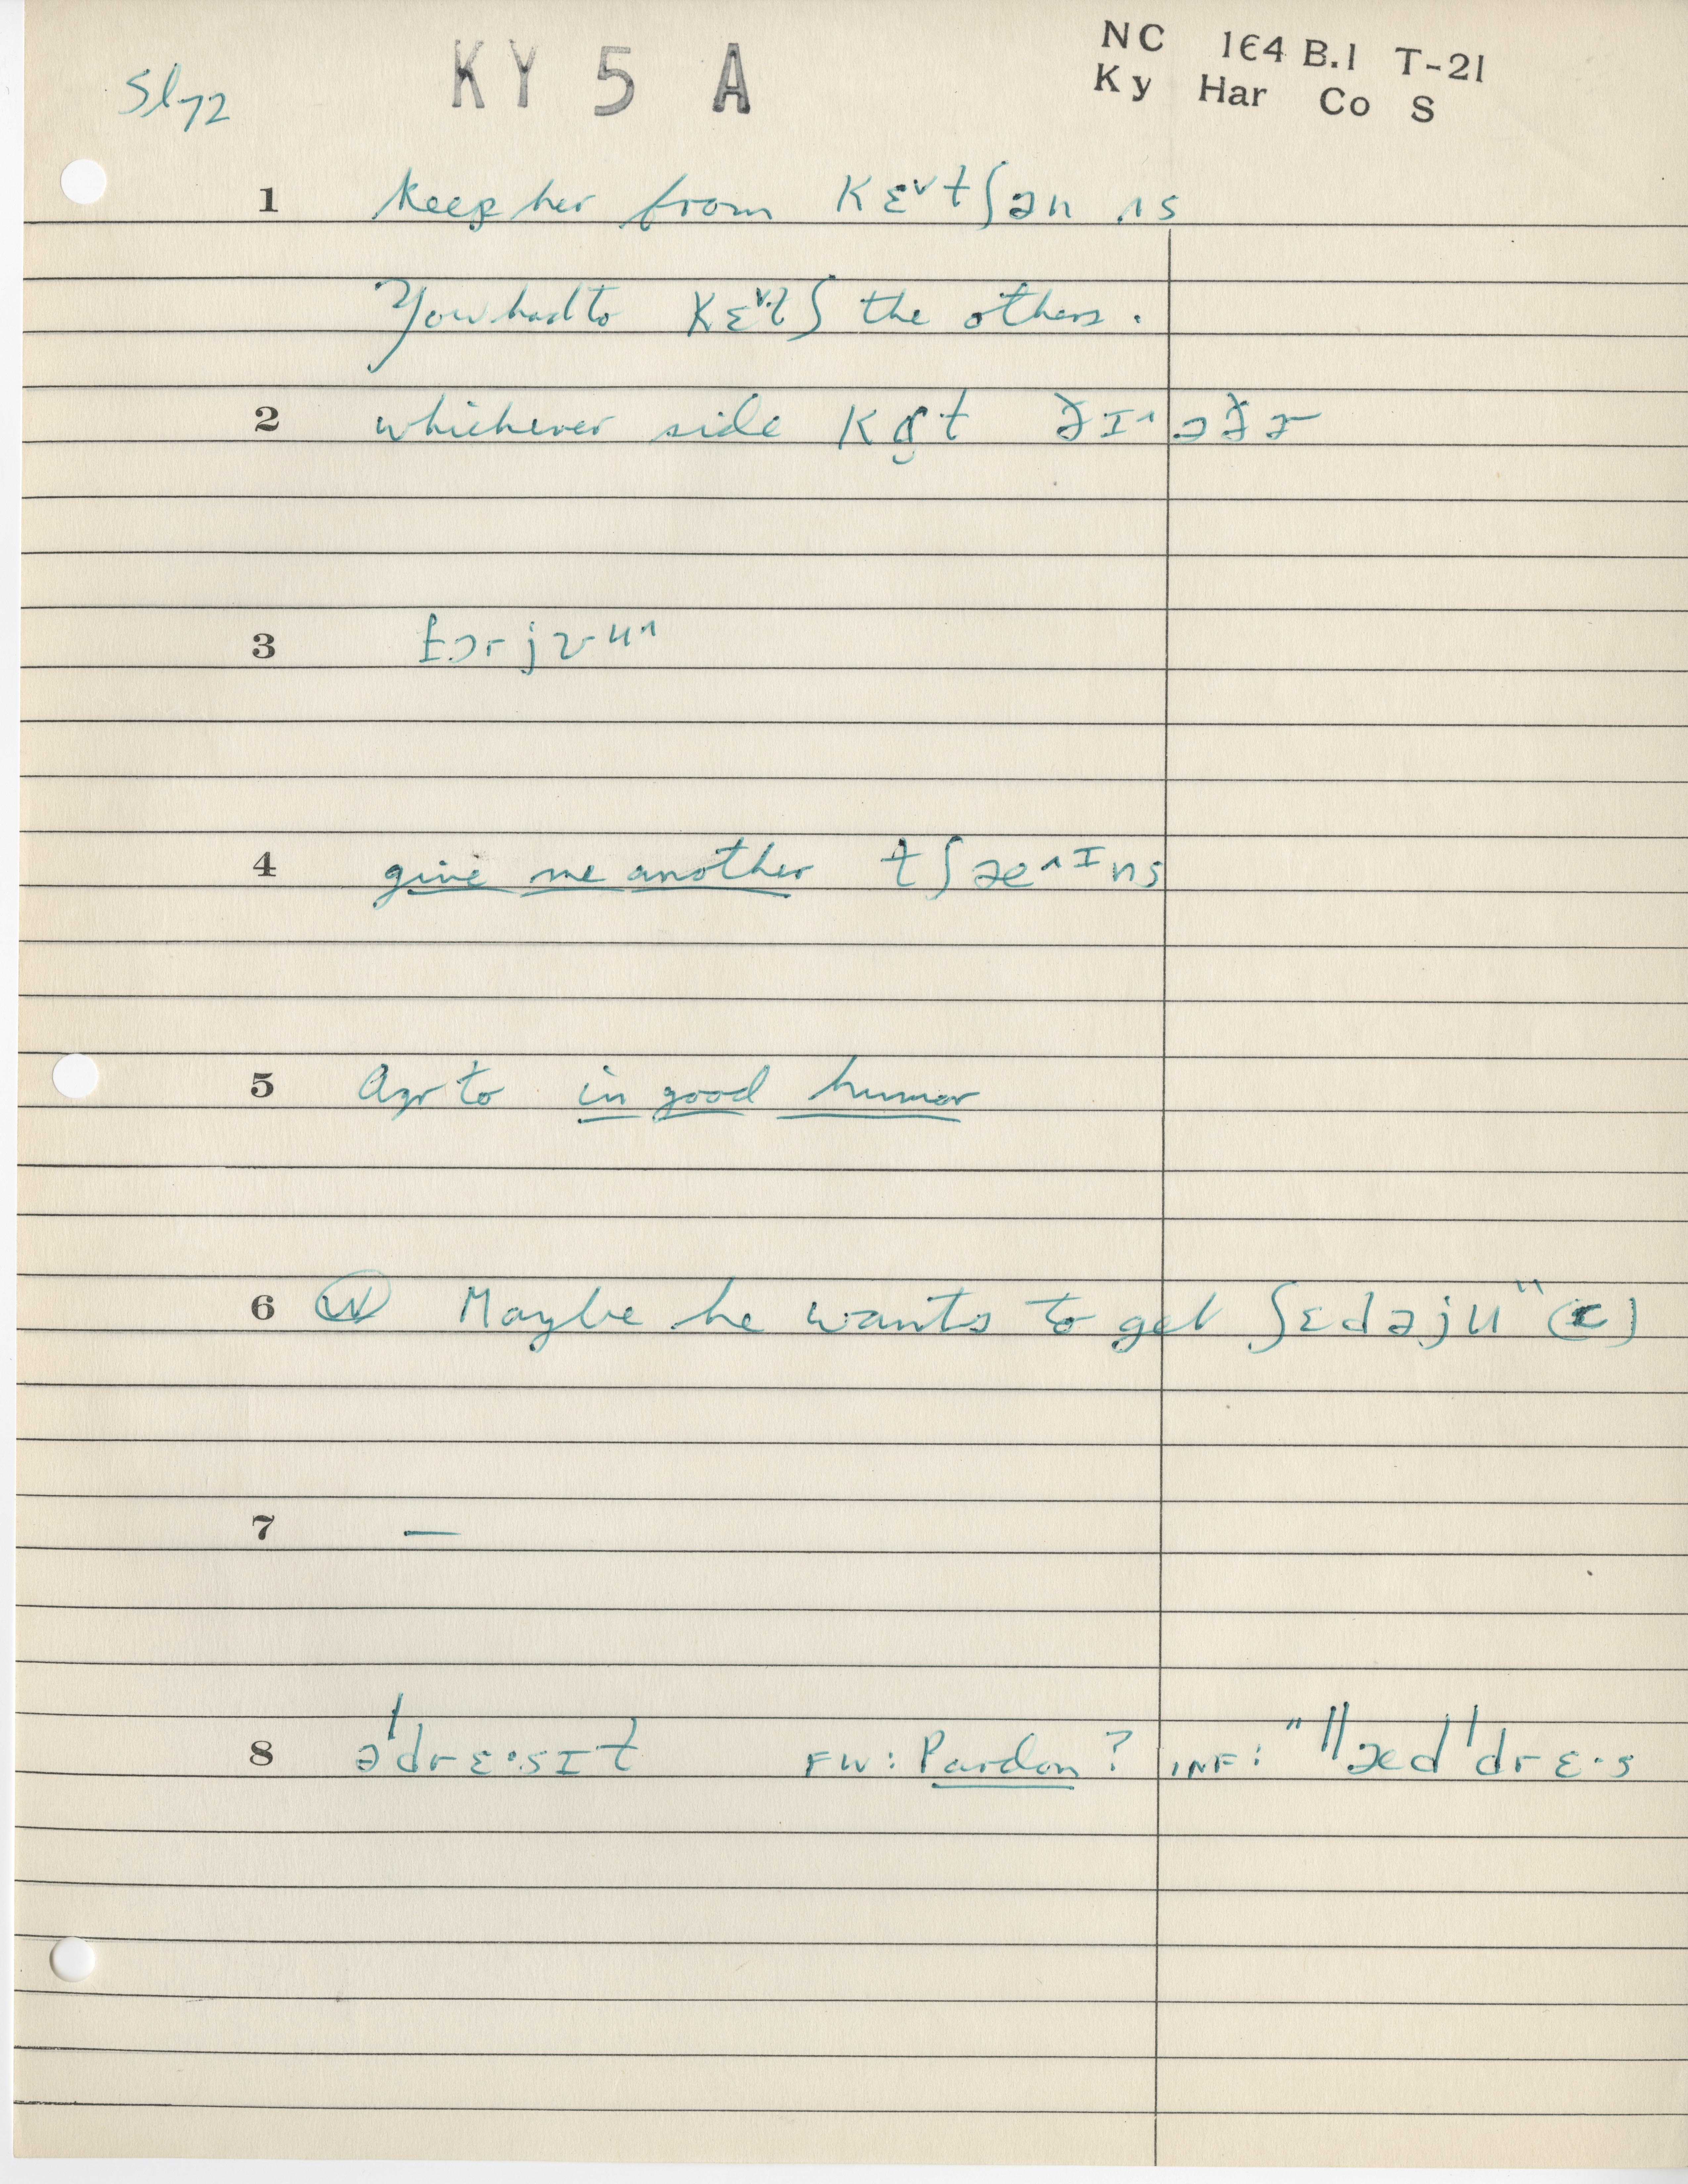 KY 5 A
NC 164 B.1 T-21
Ky Har Co S
1 keep her from kɛ˅tʃən ʌs
You had to kɛ˅tʃ the others.
2 whichever side ðɪ^ ɔðɚ
3 fɔr jʊu^
4 give me another tʃæ^ɪns
5 Agr to in good humor
6 (W) Maybe he wants to get ʃɛd ə ju
7 —
8 əˈdrɛ·s ɪt FW: Pardon? INF: "ˈˈædˈdrɛ·s